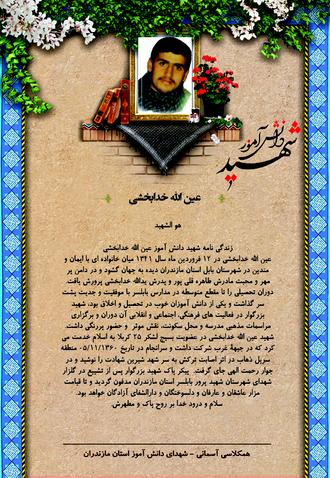 دانش آموز
شهید
عین الله خدابخشی
هو الشهید
زندگی نامه شهید دانش آموز عین الله خدابخشی
عین الله خدابخشی در ۱۲ فروردین ماه سال ۱۳۴۱ میان خانواده ای با ایمان و
متدین در شهرستان بابل استان مازندران دیده به جهان گشود و در دامن پر
مهر و محبت مادرش طاهره قلی پور و پدرش یدالله خدابخشی پرورش یافت.
دوران تحصیلی را تا مقطع متوسطه در مدارس بابلسر با موفقیت و جدیت پشت
سر گذاشت و یکی از دانش آموزان خوب در تحصیل و اخلاق بود، شهید
بزرگوار در فعالیت های فرهنگی، اجتماعی و انقلابی آن دوران و برگزاری
مراسمات مذهبی مدرسه و محل سکونت، نقش موثر و حضور پررنگی داشت.
شهید عین الله خدابخشی در عضویت بسیج لشکر ۲۵ کربلا به اسلام خدمت می
کرد که در جبههٔ غرب شرکت داشت و سرانجام در تاریخ ۰۵/۱۱/۱۳۶۰ منطقه
سرپل ذهاب در اثر اصابت ترکش به سر شهد شیرین شهادت را نوشید و در
جوار رحمت الهی جای گرفت. پیکر پاک شهید بزرگوار پس از تشییع در گلزار
شهدای شهرستان شهید پرور بابلسر استان مازندران مدفون گردید و تا قیامت
مزار عاشقان و عارفان و دلسوختگان و دارالشفای آزادگان خواهد بود.
سلام و درود خدا بر روح پاک و مطهرش.
همکلاسی آسمانی - شهدای دانش آموز استان مازندران